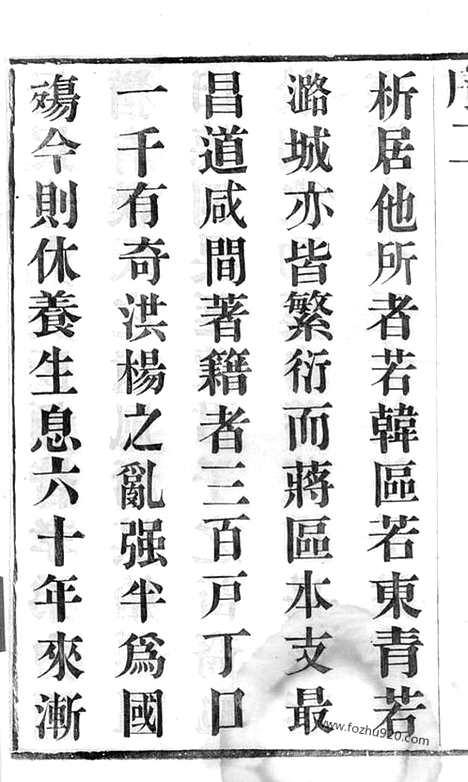 序二
析居他所者若韓區若東青若
潞城亦皆繁衍而蔣區本支最
昌道咸間著籍者三百戸丁口
一千有奇洪楊之亂强半爲國
殤今則休養生息六十年來漸
www.fozhu920.com